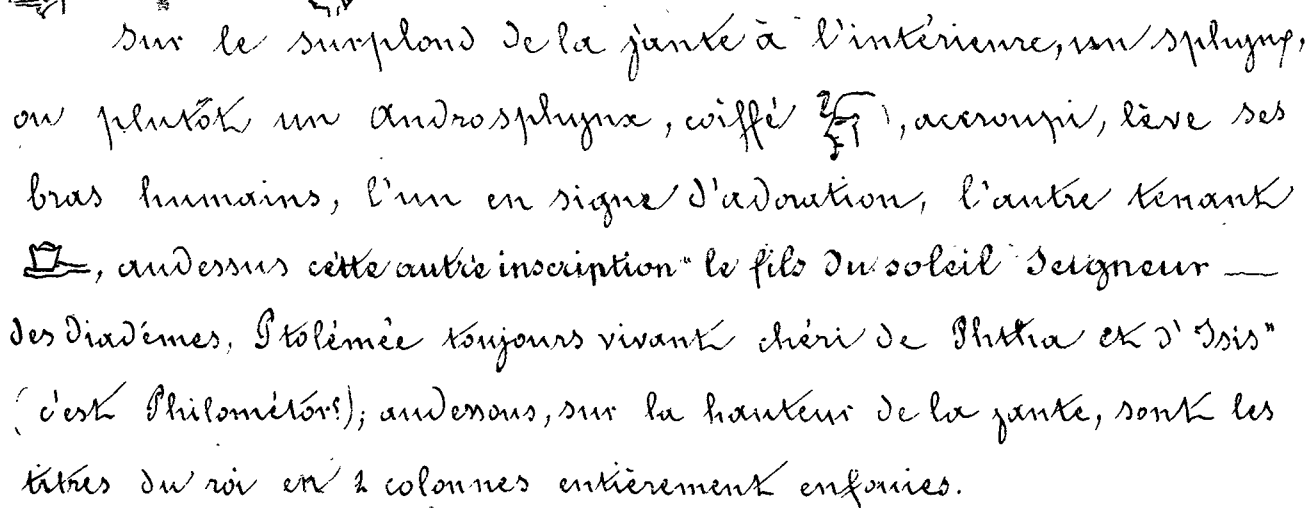 Sur le surplond de la jante à l'intérieure, un sphynx,
ou plutôt un Androsphynx, coiffé , accroupi, lève ses
bras humains, l'un en signe d'adoration, l'autre tenant
, audessus cette autre inscription " le fils du soleil Seigneur —
des Diadémes, Ptolémée toujours vivant chéri de Phtha et d'Isis"
(c'est Philométor!); audessous, sur la hauteur de la jante, sont les
titres du roi en 2 colonnes entièrement enfouies.